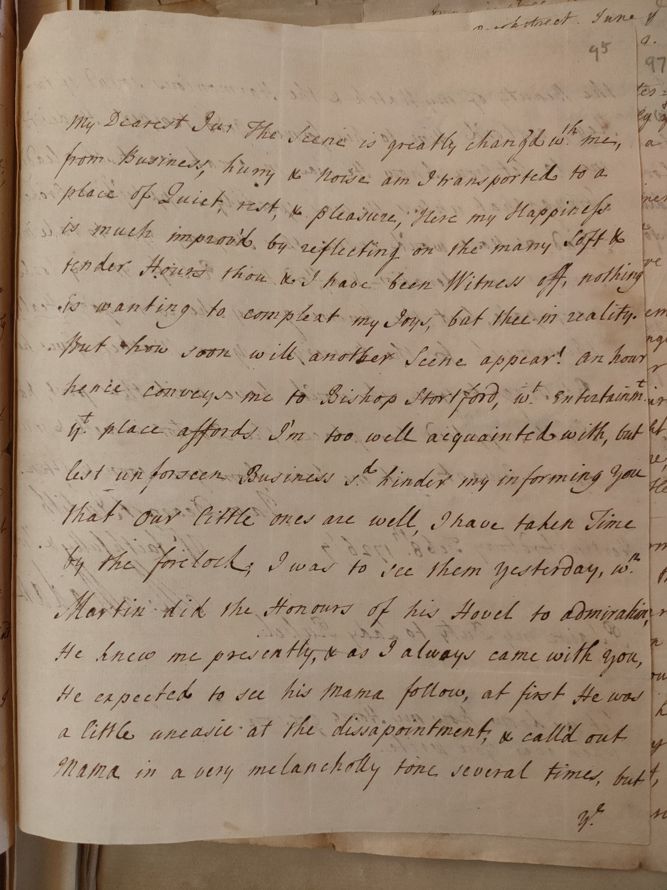 95
My Dearest Ju: The Scene is greatly chang'd wth me,
from Business, hurry & noise am I transported to a
place of Quiet, rest, & pleasure, Here my Happiness
is much improv'd by reflecting on the many Soft &
tender Hours thou & I have been Witness off, nothing
is wanting to compleat my Joys, but thee in reality.
But how soon will another Scene appear! an hour
hence conveys me to Bishop Stortford, wt Entertainmt
yt place affords I'm too well acquainted with, but
lest unforseen Business sd hinder my informing you
that our little ones are well, I have taken Time
by the forelock; I was to see them yesterday, wn
Martin did the Honours of his Hovel to admiration,
He knew me presently, & as I always came with you,
He expected to see his Mama follow, at first He was
a little uneasie at the dissapointment, & call'd out
Mama in a very melancholly tone several times, but
ye
June
97